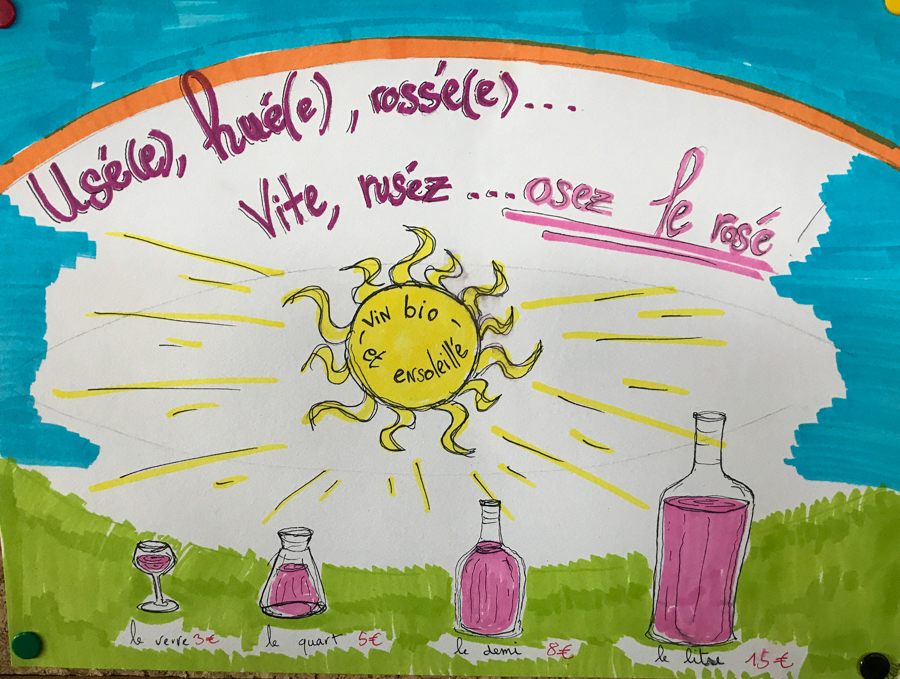 Usé(e), hué(e), rossé(e)...
Vite, ruséz ...osez le rosé
vin bio
et ensoleillé
le verre 3€
le quart 5€
le demi 8€
le litre 15€